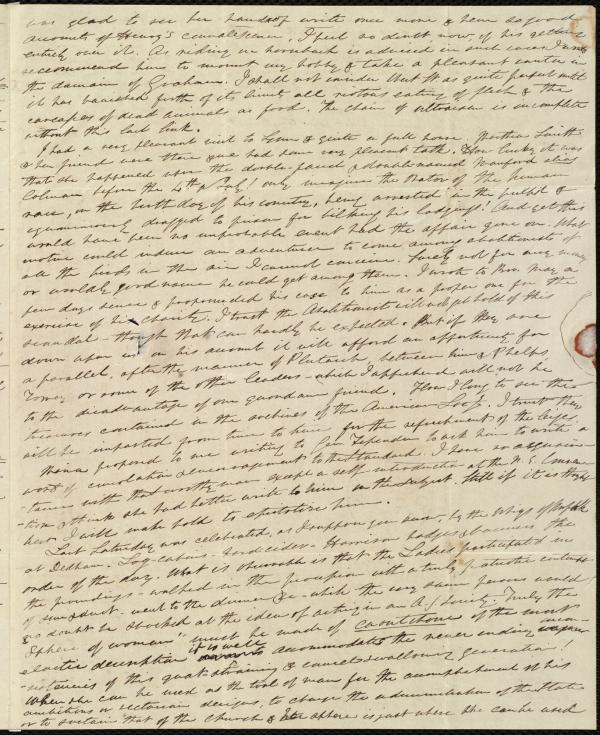 was glad to see her handscript write once more & hear so good
accounts of Henry's convalescence, I feel no doubt now, of his getting
entirely over it. As riding on horseback is advised in such cases I must
recommend him to mount my hobby & take a pleasant canter in
the domain of Graham. I shall not consider that as quite perfect until
it has banished forth of its limits all riotous eating of flesh & the
carcases of dead animals as food. The chain of ultraism is incomplete
without this last link.
I had a very pleasant visit to Lynn & quite a full house
& her friend were there & we had some very pleasant talk. How lucky it was
that she happened upon the double-faced & double-named alias
Colman before the 4th of July! only imagine the Orator of the human
race, on the birth day of his country, being arrested in the pulpit &
ignominiously dragged to prison for bilking his lodgings! And yet this
would have been no improbable event had the affair gone on. What
motive could induce an adventurer to come among abolitionists of
all the birds in the air I cannot conceive. Surely not for any money
or worldly good name he could get among them. I wrote to Bro. May a
few days since & propounded his case to him as a proper one for the
exercise of his charity. I trust the Abolitionists will not get hold of the
scandal - though that can hardly be expected. But if they are
down upon us on his account it will afford an opportunity for
a parallel, after the manner of Plutarch, between him & Phelps,
Torrey or some of the other leaders - which I apprehend will not be
to the disadvantage of our quondam friend. How I long to see the
treasures contained in the archives of the American Soc'y. I trust they
will be imparted from time to time for the refreshment of the lieges.
proposed to me writing to Gen. Fessenden to ask him to write a
word of consolation & encouragement to the Standard. I have no acquain-
-tance with that worthy man except a self-introduction at the N. E. Conven-
-tion & think she had better write to him on the subject. Still if it is thought
best I will make bold to epistolize him.
Last Saturday was celebrated, as I suppose you saw, by the Whigs of Norfolk
at Dedham. Log-cabins - hard cider - Harrison badges & banners the
order of the day. What is observable is that the Ladies participated in
the proceedings - walked in the procession with a truly patriotic endurance
of sun & dust - went to the dinner &c - while the very same persons would
no doubt be shocked at the idea of acting in an A. S. Society. Truly the
"Sphere of woman" must be made of caoutchouc of the most
elastic description if it is well accommodates the never ending incon-
-sistencies of this gnat-straining & camel-swallowing generation!
When she can be used as the tool of man for the accomplishment of his
ambitious or sectarian designs, to change the administration of the State
or to sustain that of the Church & her sphere is just where she can be used